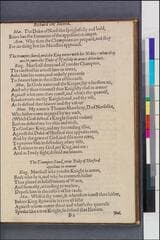 Richard the second.
Mar. The Duke of Norffolke sprightfully and bold,
Staies but the summons of the appellants trumpet.
Aum. Why then the Champions are prepard, and stay
For nothing but his Maiesties approach.
The trumpets sound, and the King enters with his Nobles; when they
are set, enter the Duke of Norfolke in armes defendant.
King. Marshall demaund of yonder Champion,
The cause of his arriuall here in armes,
Aske him his name, and orderly proceede
To sweare him in the iustice of his cause.
Mar. In Gods name and the Kings say who thou art,
And why thou commest thus knightly clad in armes,
Against what man thou comst, and what thy quarrell,
Speake truely on thy knighthood, and thy oth,
As so defend thee heauen and thy valour.
Mow. My name is Thomas Mowbray Duke of Norffolke,
Who hither come ingaged by my oath,
(Which God defend a Knight should violate)
Both to defend my loyalty and truth,
To God, my King, and my succeeding issue,
Against the Duke of Herford that appeales me,
And by the grace of God, and this mine arme,
To proue him in defending of my selfe,
A traitour to my God, my King, and me,
And as I truely fight, defend me heauen.
The Trumpets sound, enter Duke of Hereford
appellant in armour
King. Marshall aske yonder Knight in armes,
Both who he is, and why he commeth hither,
Thus plated in habiliments of warre,
And formally, according to our lawe,
Depose him in the iustice of his cause.
Mar. What is thy name, & wherefore comst thou hither,
Before King Richard in his royall lists?
Against whom comes thou? and whats thy quarrell?
Speake like a true Knight, so defend thee heauen.
B 2 Bul.